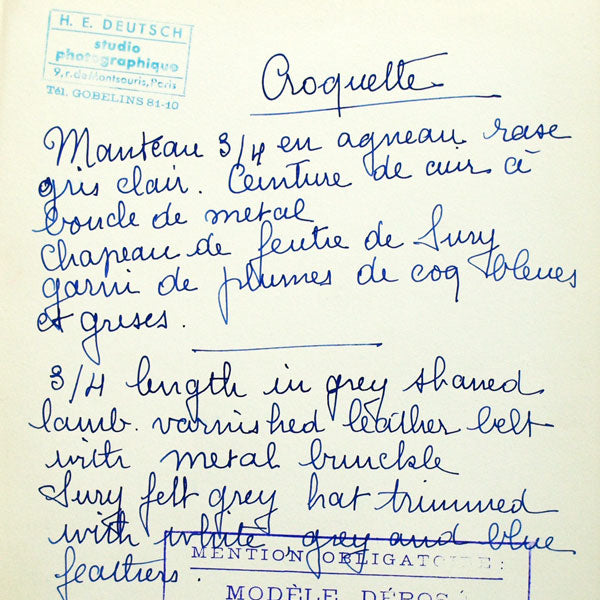 H. E. DEUTSCH
studio
photographique
9, r. de Montsouris, Paris
Tél. GOBELINS 81-10
Croquette
Manteau 3/4 en agneau rase
gris clair. Ceinture de cuir à
boucle de metal
Chapeau de feutre de Svry
garni de plumes de coq bleues
et grises.
3/4 length in grey shaved
lamb. varnished leather belt
with metal bunckle
Svry felt grey hat trimmed
with white, grey and blue
feathers.
MENTION OBLIGATOIRE :
MODÈLE DÉPOSÉ